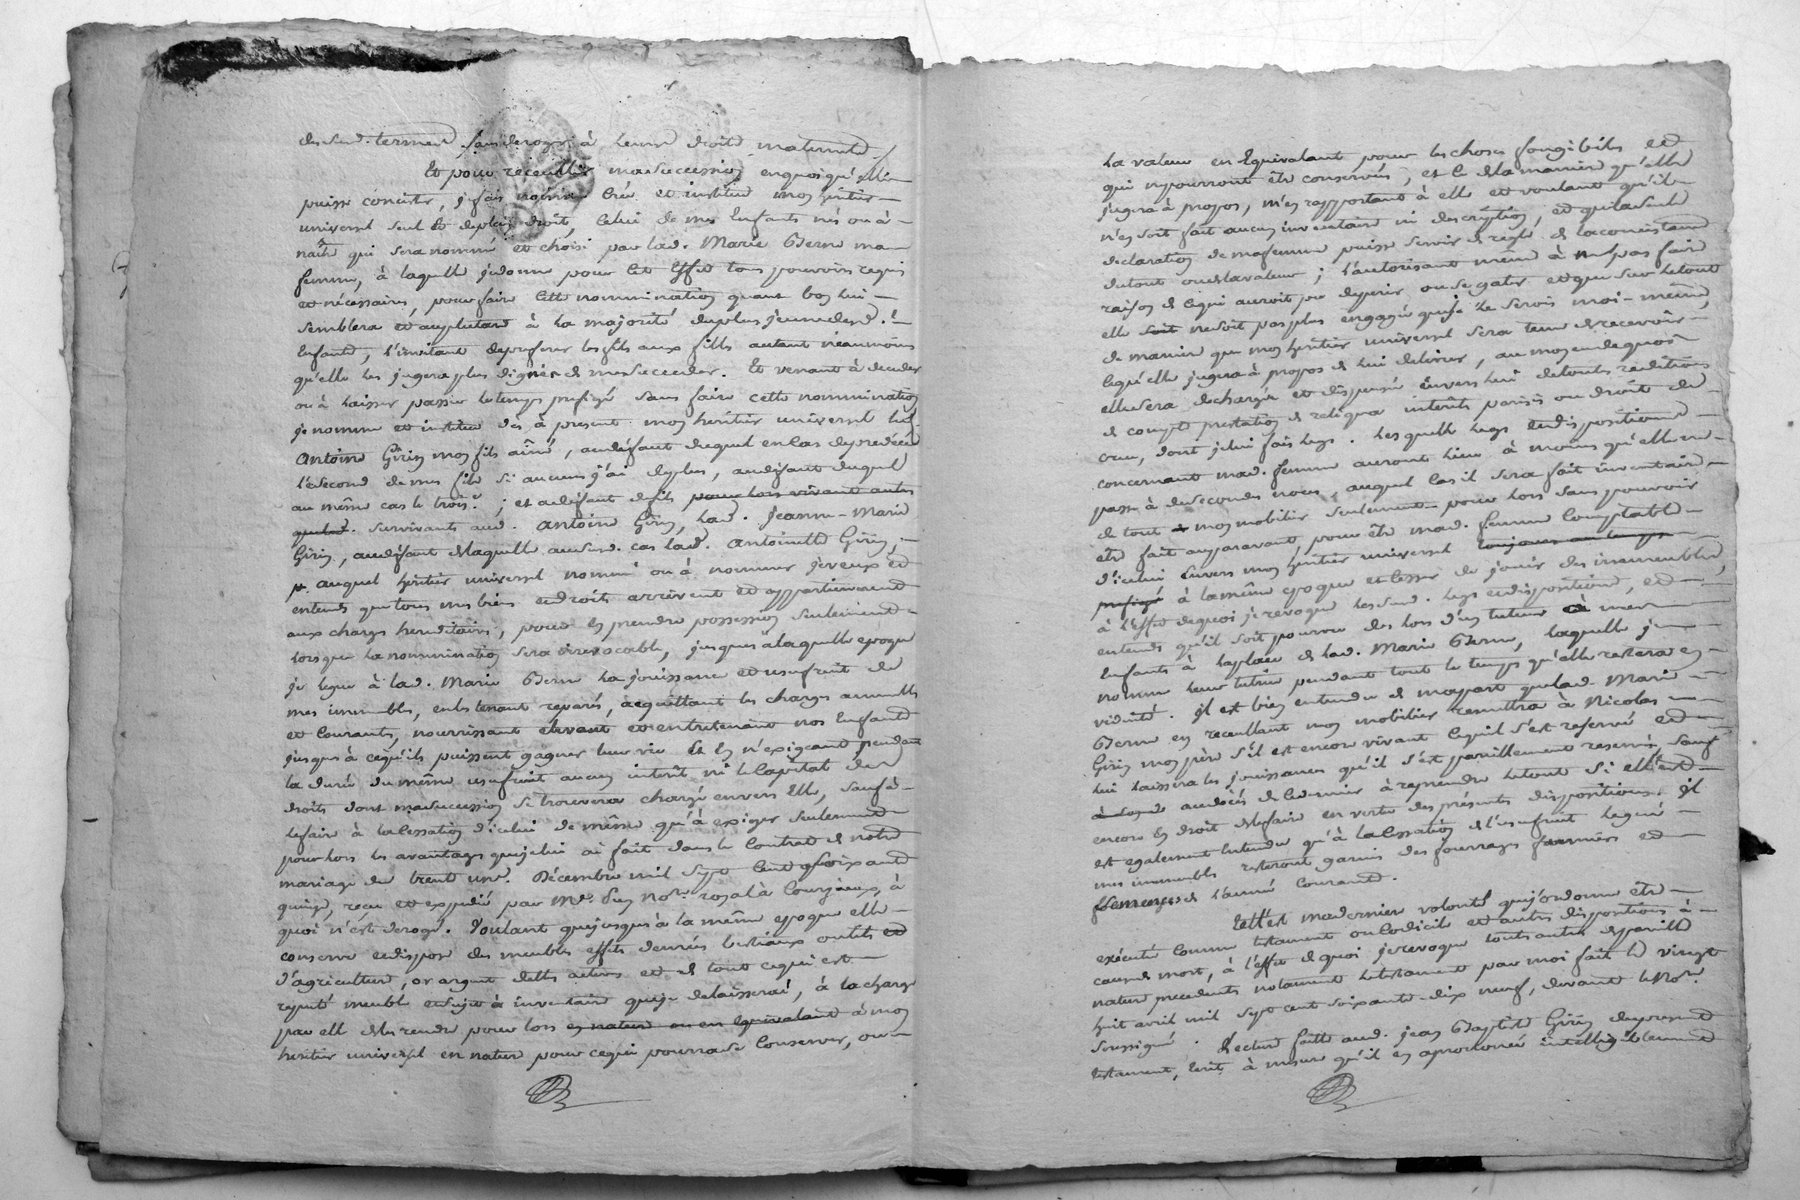 desd. termes sans deroger à leurs droits maternels
Et pour recueillir ma succession en quoi qu'elle
puisse consister, je fais nomme crée et institue mon heritier
universel seul et de plein droit, celui de mes Enfants nés ou à
naître qui sera nommé et choisi par lad. Marie Berne ma
femme, à laquelle je donne pour cet Effet tous pouvoirs requis
et nécessaires, pour faire cette nommination quand bon lui
semblera et au plutard à la majorité du plus jeune desd.
Enfants, l'invitant de preferer les fils aux filles autant néanmoins
qu'elle les jugera plus dignes de me succeder. Et venant à deceder
ou à laisser passer le temps prefigé sans faire cette nommination
je nomme et institue dès à present mon héritier universel led.
Antoine Girin mon fils aîné, au défaut duquel en cas de predecès
le second de mes fils si aucuns j'ai de plus, au défaut duquel
au même cas le trois.e ; et au défaut de fils pour lors vivant autre
que led. survivants aud. Antoine Girin, lad. Jeanne-Marie
Girin, au défaut de laquelle au susd. cas lad. Antoinette Girin ;
auquel heritier universel nommé ou à nommer je veux et
entends que tous mes biens et droits arrivent et appartiennent
aux charges hereditaires, pour en prendre possession seulement
lorsque la nommination sera irrevocable, jusques à laquelle epoque
je legue à lad. Marie Berne la jouissance et usufruit de
mes immeubles, en les tenant reparés, acquittant les charges annuelles
et courantes, nourrissant élevant et entretenant nos Enfants
jusques à ce qu'ils puissent gagner leur vie et en n'exigeant pendant
la durée du même usufruit aucun intérêt ni le Capital des
droits dont ma succession se trouvera chargé envers Elle, sauf à
le faire à la Cessation d'icelui de même qu'à exiger seulement
pour lors les avantages que je lui ai fait dans le Contrat de notre
mariage du trente un Décembre mil sept Cent soixante
quinze, reçu et expedié par Me. royal à Courzieux, à
quoi n'est derogé. Voulant que jusques à la même epoque elle
conserve et dispose des meubles effets denrées bestiaux outils et
d'agriculture, or argent dettes actives et de tout ce qui est
reputé meuble et sujet à inventaire que je delaisserai, à la charge
par elle de les rendre pour lors en nature ou en equivalant à mon
heritier universel en nature pour ce qui pourra se Conserver, ou
la valeur en Equivalant pour les choses fongibiles et
qui ne pourront être conservées, et ce de la maniere qu'elle
jugera à propos, m'en rapportant à elle et voulant qu'il
n'en soit fait aucun inventaire ni description, et que la seule
declaration de ma femme puisse servir de regle de la consistance
du tout ou de la valeur ; l'autorisant même à ne pas faire
raison de ce qui auroit pu deperir ou se gater et que sur le tout
elle soit ne soit pas plus engagée que je le serois moi-même,
de maniere que mon heritier universel sera tenu de recevoir
ce qu'elle jugera à propos de lui delivrer, au moyen de quoi
elle sera dechargée et dispensée Envers lui de toutes redditions
de compte prestation de reliqua intérêts parisis ou droit de
crue, dont je lui fais legs. Lesquels legs et dispositions
concernant mad. femme auront lieu à moins qu'elle ne
passe à de secondes noces, auquel cas il sera fait inventaire
de tout mon mobilier seulement pour lors sans pouvoir
être fait auparavant, pour être mad. femme Comptable
d'icelui Envers mon heritier universel toujours au temps
prefigé à la même epoque et cesser de jouir des immeubles,
à l'effet de quoi je revoque les susd. legs et dispositions, et
entends qu'il soit pourvu dès lors d'un tuteur à mes
Enfants à la place de lad. Marie Berne, laquelle je
nomme leur tutrice pendant tout le temps qu'elle restera en
viduité. Il est bien entendu de ma part que lad. Marie
Berne en recueillant mon mobilier remettra à Nicolas
Girin mon père s'il est encore vivant ce qu'il s'est reservé et
lui laissera les jouissances qu'il s'est pareillement reservé, sauf
au decès de ce dernier à reprendre le tout si elle est
encore en droit de le faire en vertu des présentes dispositions. Il
est egalement Entendu qu'à la cessation de l'usufruit legué
mes immeubles resteront garnis des fourrages fumiers et
semences de l'année courante.
Telle est ma derniere volonté que j'ordonne être
exécutée comme testament ou Codicile et autres dispositions à
cause de mort, à l'effet de quoi je revoque toutes autres de pareille
nature precedentes notament le testament par moi fait le vingt
huit avril mil sept cent soixante-dix neuf, devant le Nore.
soussigné. Lecture faitte aud. Jean Baptiste Girin du present
testament, ecrit à mesure qu'il l'a prononcé intelligiblement